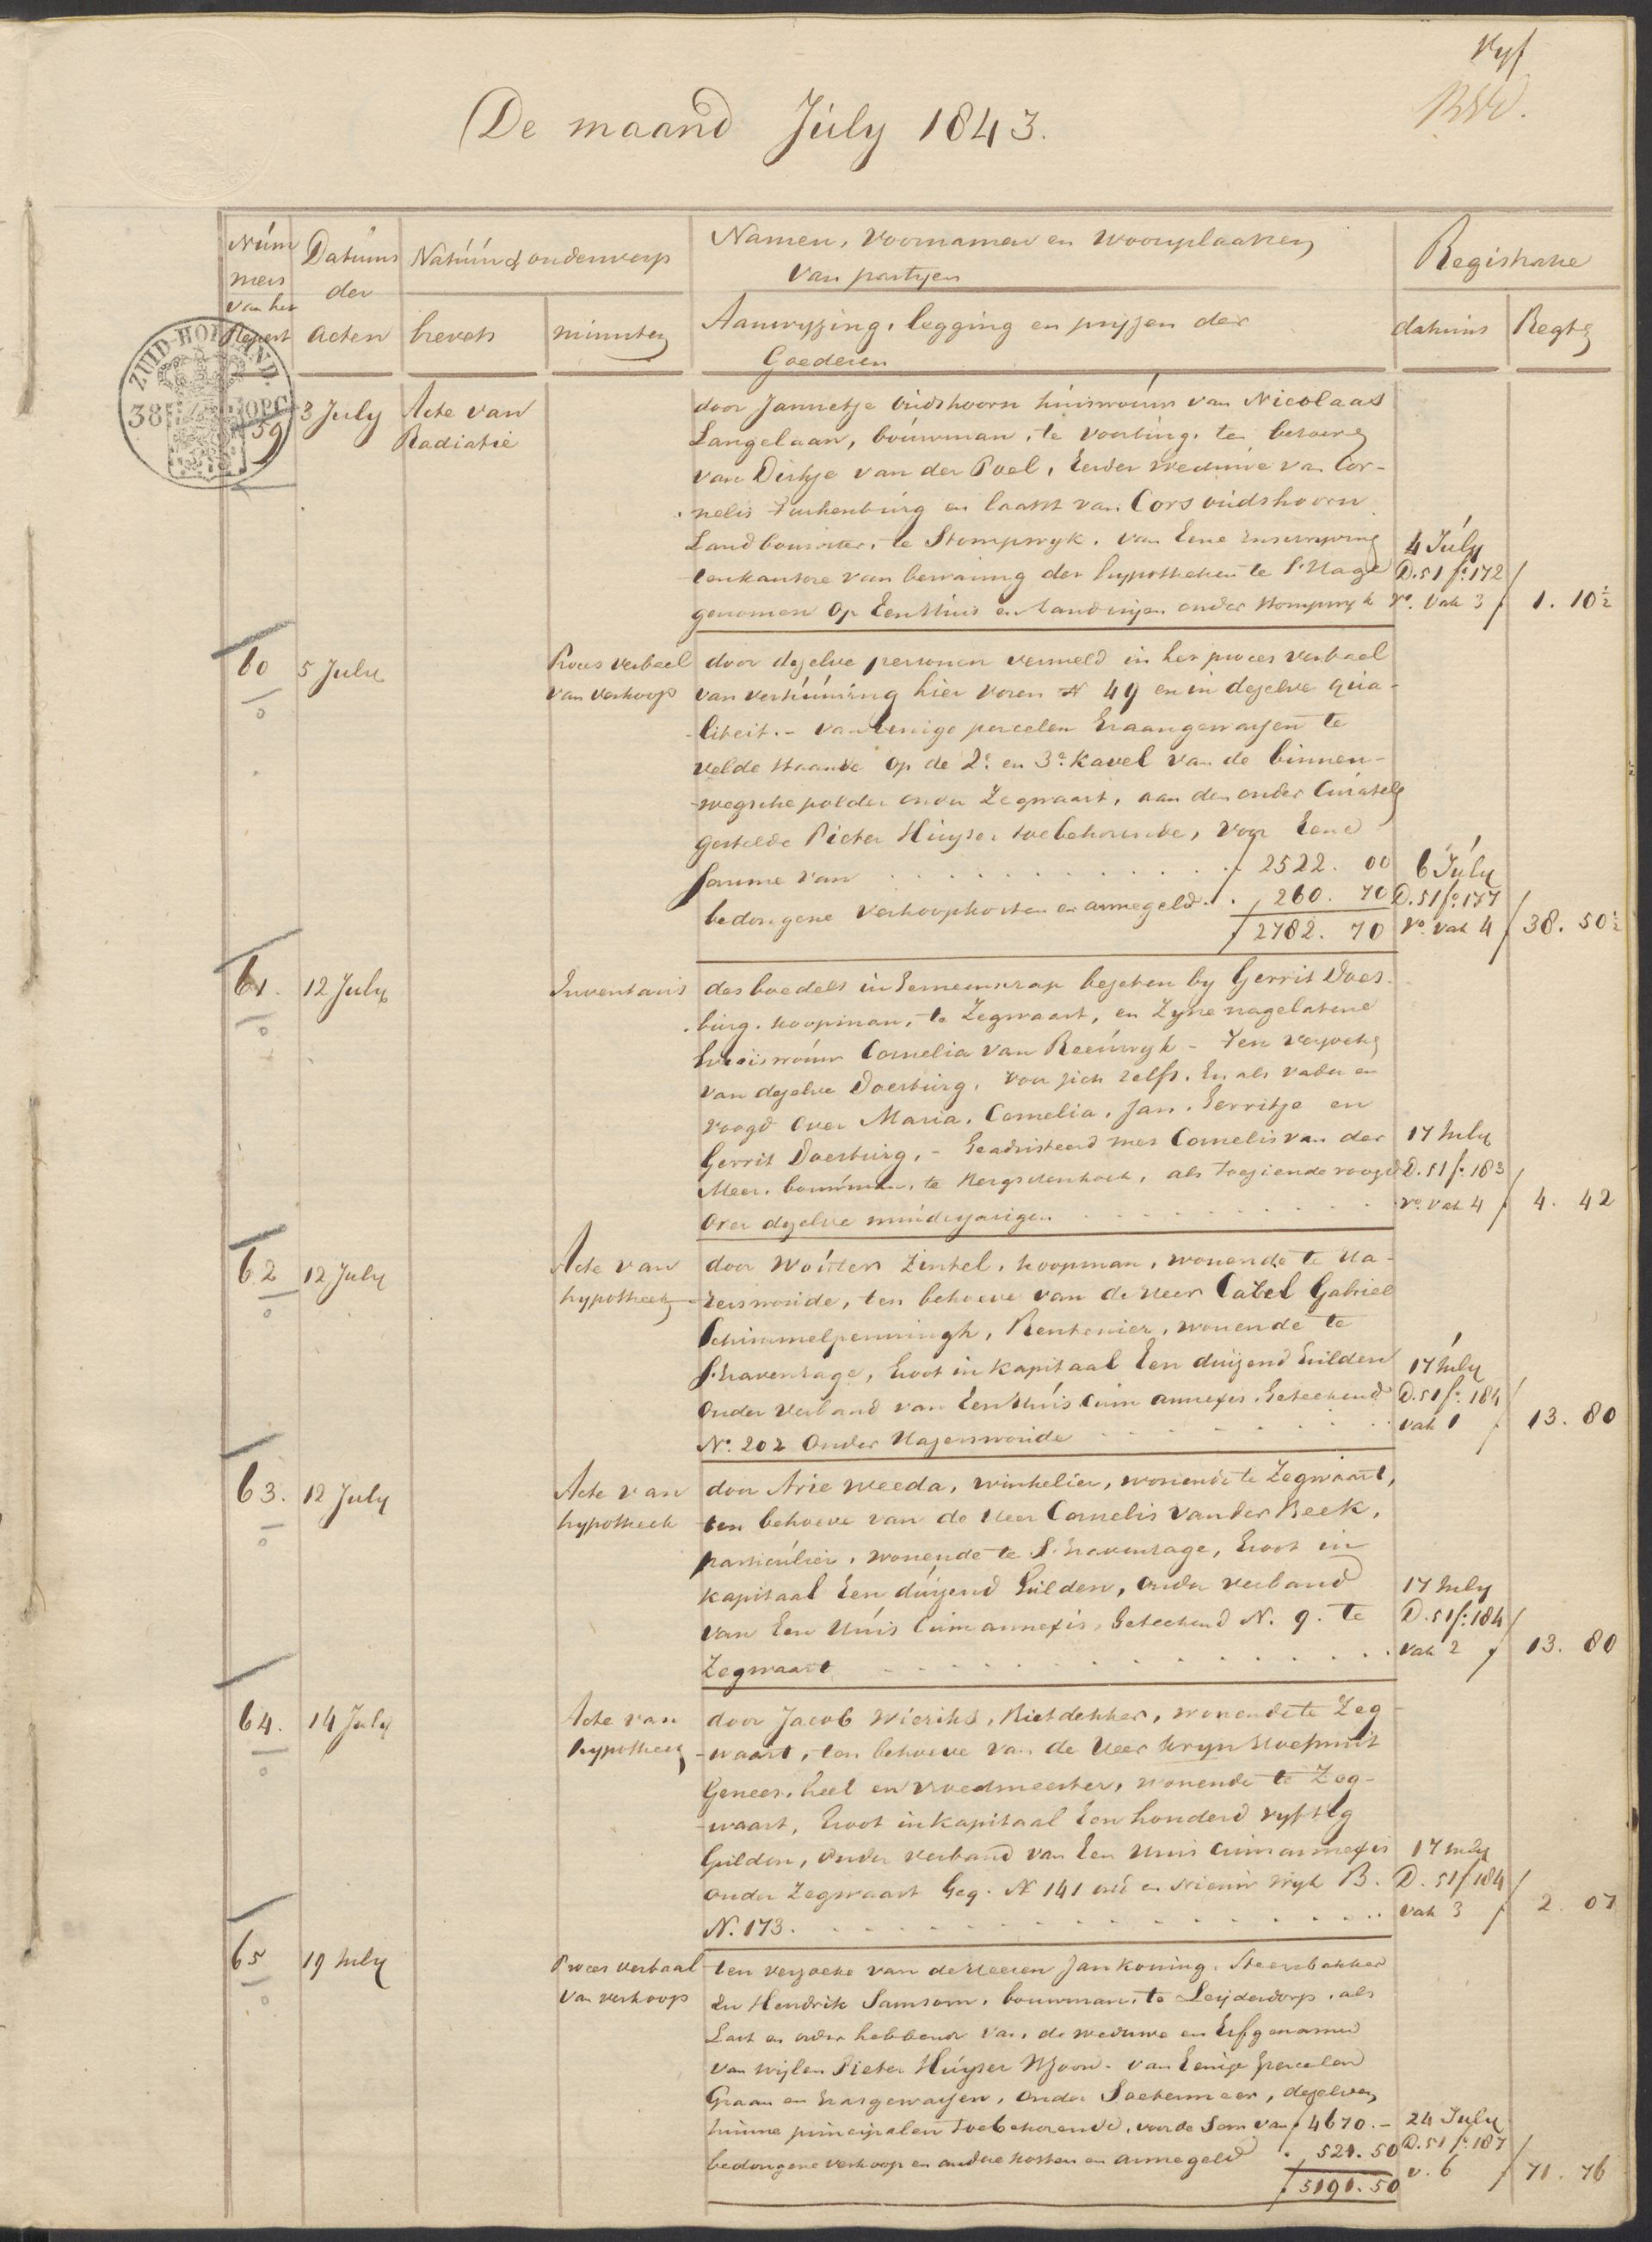 Vyf
De maand July 1843.
Num
mers
van het
Repert
Datums
der
acten
Natuur & onderwerp
brevets
minuten
Namen, Voornamen en Woonplaatsen
Van partyen
Aanwyzing, legging en pryzen der
Goederen
Registratie
datums
Regten
ZUID-HOLLAND
38
59
3 July
Acte van
Radiatie
door Jannetje Oudshoorn huisvrouw van Nicolaas
Langelaan, bouwman, te Voorburg, ten behoeve
van Dirkje van der Poel, Eerder weduwe van Cor-
nelis Turkenburg en laatst van Cors oudshoorn
Landbouwster, te Stompwyk. van Eene Inschryving
ten kantore van bewaring der hypotheken te s'Hage
genomen Op Een Huis en Landeryen onder Stompwyk
4 July
D. 51 fo. 172
Vo. Vak 3
f 1. 10½
60
5 July
Proces Verbaal
van Verkoop
door dezelve personen vermeld in het proces Verbaal
van verhuuring hier voren No 49 en in dezelve qua-
liteit. - van Eenige perceelen Graangewassen te
velde staande op de 2e. en 3e. Kavel van de binnen-
wegsche polder onder Zegwaart, aan den onder Curatele
gestelde Pieter Huyser toebehorende, voor Eene
Somme van . . . . . f 2522. 00
bedongene Verkoopkosten en armegeld . . 260. 70
f 2782. 70
6 July
D. 51 fo. 177
Vo. Vak 4
f 38. 50½
61.
12 July
Inventaris
des boedels in Gemeenschap bezeten by Gerrit Does-
burg, koopman, te Zegwaart, en Zyne nagelatene
huisvrouw Cornelia van Reeuwyk - Ten verzoeke
van dezelve Doesburg, voor zich zelfs, En als vader en
voogd over Maria, Cornelia, Jan, Gerritje en
Gerrit Doesburg, - Geadsisteerd met Cornelis van der
Meer, bouwman, te Bergschenhoek, als toeziende voogd
Over dezelve minderjarigen . . . . .
17 July
D. 51 fo. 183
Vo. Vak 4
f 4. 42
62
12 July
Acte van
hypotheek
door Wouter Zinkel, koopman, wonende te Ha-
zerswoude, ten behoeve van de Heer Carel Gabriel
Schimmelpenningh, Rentenier, wonende te
s'Gravenhage, Groot in kapitaal Een duizend Guldens
Onder Verband van Een Huis Cum annexis, Geteekend
No. 202 Onder Hazerswoude . . . . .
17 July
D. 51 fo. 184
Vak 1
f 13. 80
63.
12 July
Acte van
hypotheek
door Arie Weeda, Winkelier, wonende te Zegwaart,
ten behoeve van de Heer Cornelis van der Beek,
particulier, wonende te S. Gravenhage, Groot in
kapitaal Een duizend Gulden, Onder verband
van Een Huis Cum annexis, Geteekend N. 9. te
Zegwaart . . . . .
17 July
D. 51 fo. 184
Vak 2
f 13. 80
64.
14 July
Acte van
hypotheek
door Jacob Wieriks, Rietdekker, wonende te Zeg-
waart, ten behoeve van de Heer Kryn
Genees, heel en vroedmeester, wonende te Zeg-
waart, Groot in kapitaal Een honderd vyftig
Gulden, Onder verband van Een Huis Cum annexis
onder Zegwaart Geq. No 141 oud en Nieuw Wyk B.
N. 173. . . . . .
17 July
D. 51 f 184
Vak 3
f 2. 07
65
19 July
Proces verbaal
van verkoop
ten verzoeke van de Heeren Jan Koning, Steenbakker
En Hendrik Samsom, bouwman, te Leyderdorp, als
Last en order hebbende van de weduwe en Erfgenamen
van wylen Pieter Huyser Wzoon. van Eenige perceelen
Graan en Grasgewassen, onder Soetermeer, dezelven
hunne principalen toebehorende, voor de Som van f 4670.-
bedongene verkoop en andere kosten en armegeld . 521. 50
f 5191. 50
24 July
D. 51 fo. 187
v. 6
f 71. 76